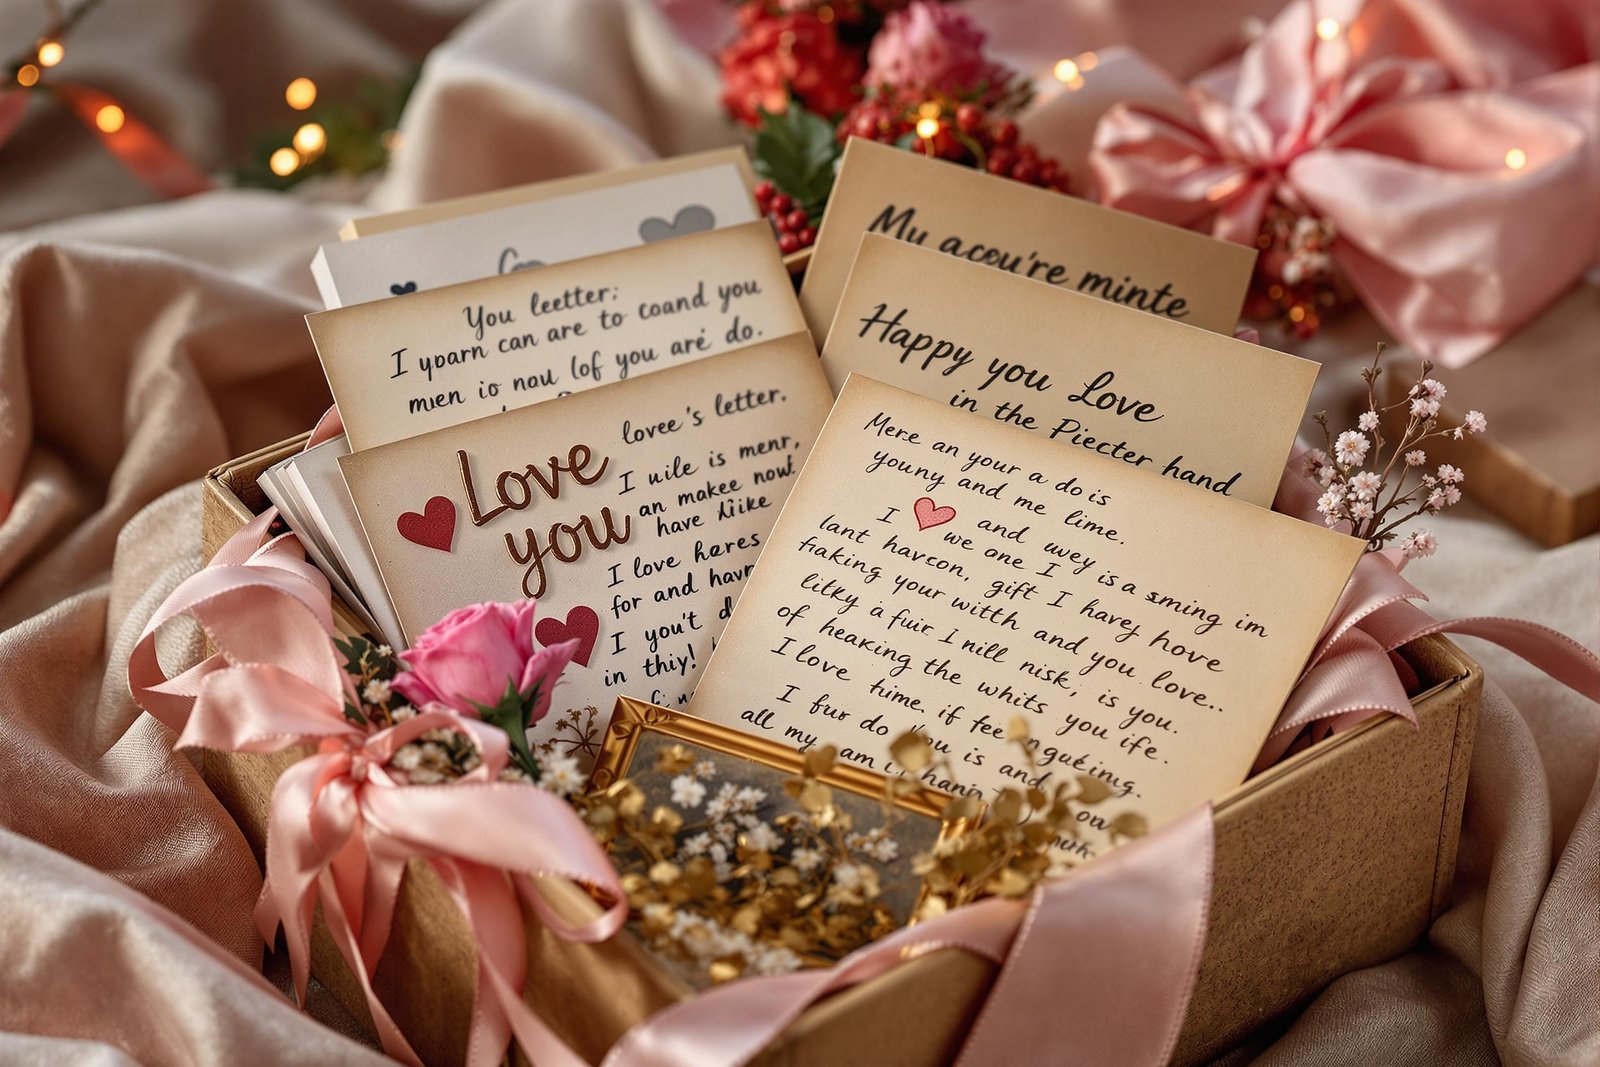 You leetter:
I yparn can are to coand you
mıen io nau lof you are do.
Love
you
lovee's letter.
I uile is menr,
an makee now.
have
I love hares
for and havr
I you't
in thiy!
My acou're minte
Happy you Love
in the Piecter hand
Mere an your a do is
youny and me lime.
I and uvey is a sming im
we one I
lant havcon, gift I havej hove
fiaking your witth and you love..
litky a fuir I nill nisk, is you.
of heaking the whits you ife.
I love time. if fee nguting.
I fur do you is and
all my am hanin